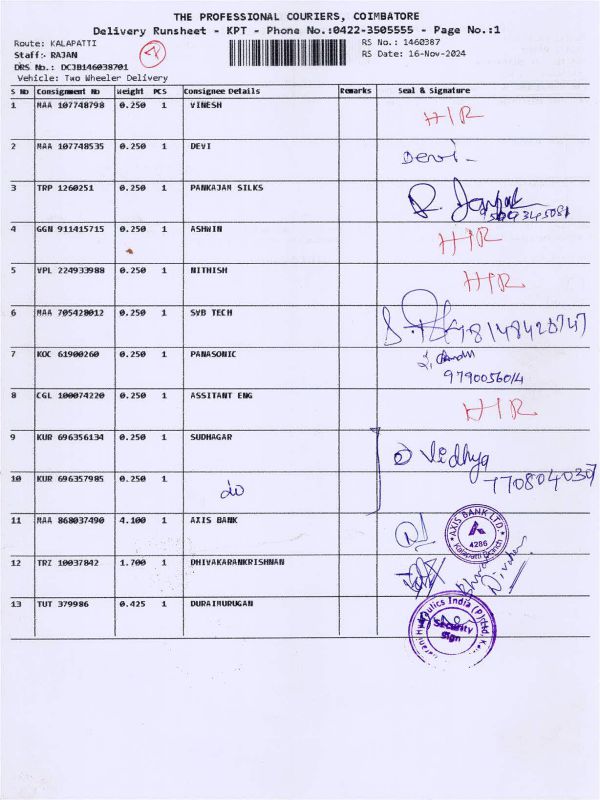 THE PROFESSIONAL COURIERS, COIMBATORE
Delivery Runsheet - KPT - Phone No.:0422-3505555 - Page No.:1
Route: KALAPATTI RS No.: 1460387
Staff:- RAJAN RS Date: 16-Nov-2024
DRS No.: DCJB146038701
Vehicle: Two Wheeler Delivery
S No Consignment No Weight PCS Consignee Details Remarks Seal & Signature
1 MAA 107748798 0.250 1 VINESH HIR
2 MAA 107748535 0.250 1 DEVI Devi-
3 TRP 1260251 0.250 1 PANKAJAM SILKS
4 GGN 911415715 0.250 1 ASHWIN HIR
5 VPL 224933988 0.250 1 NITHISH HIR
6 MAA 705428012 0.250 1 SVB TECH
7 KOC 61900260 0.250 1 PANASONIC
9790056014
8 CGL 100074220 0.250 1 ASSITANT ENG HIR
9 KUR 696356134 0.250 1 SUDHAGAR Vidhya
10 KUR 696357985 0.250 1 do 770804030
11 MAA 868037490 4.100 1 AXIS BANK AXIS BANK LTD. 4286 Kalapatti Branch
12 TRZ 10037842 1.700 1 DHIVAKARANKRISHNAN
13 TUT 379986 0.425 1 DURAIMURUGAN
India (P) Ltd
Security
Sign